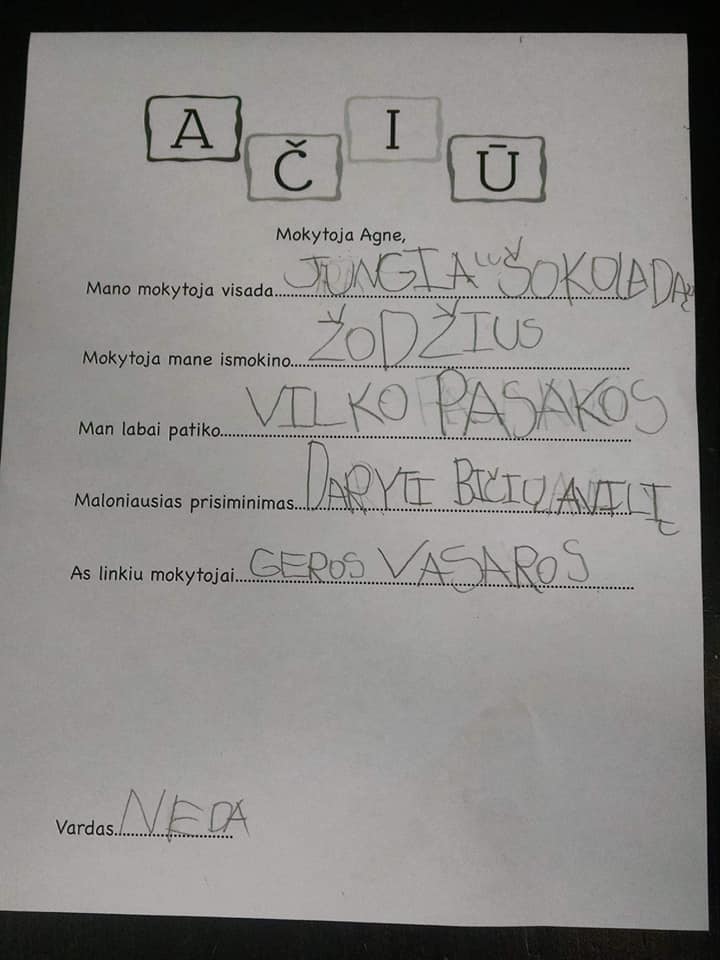 AČIŪ
Mokytoja Agne,
Mano mokytoja visada....JUNGIA ŠOKOLADĄ
Mokytoja mane ismokino....ŽODŽIUS
Man labai patiko....VILKO PASAKOS
Maloniausias prisiminimas....DARYTI BIČIŲ AVILĮ
As linkiu mokytojai....GEROS VASAROS
Vardas....NEDA